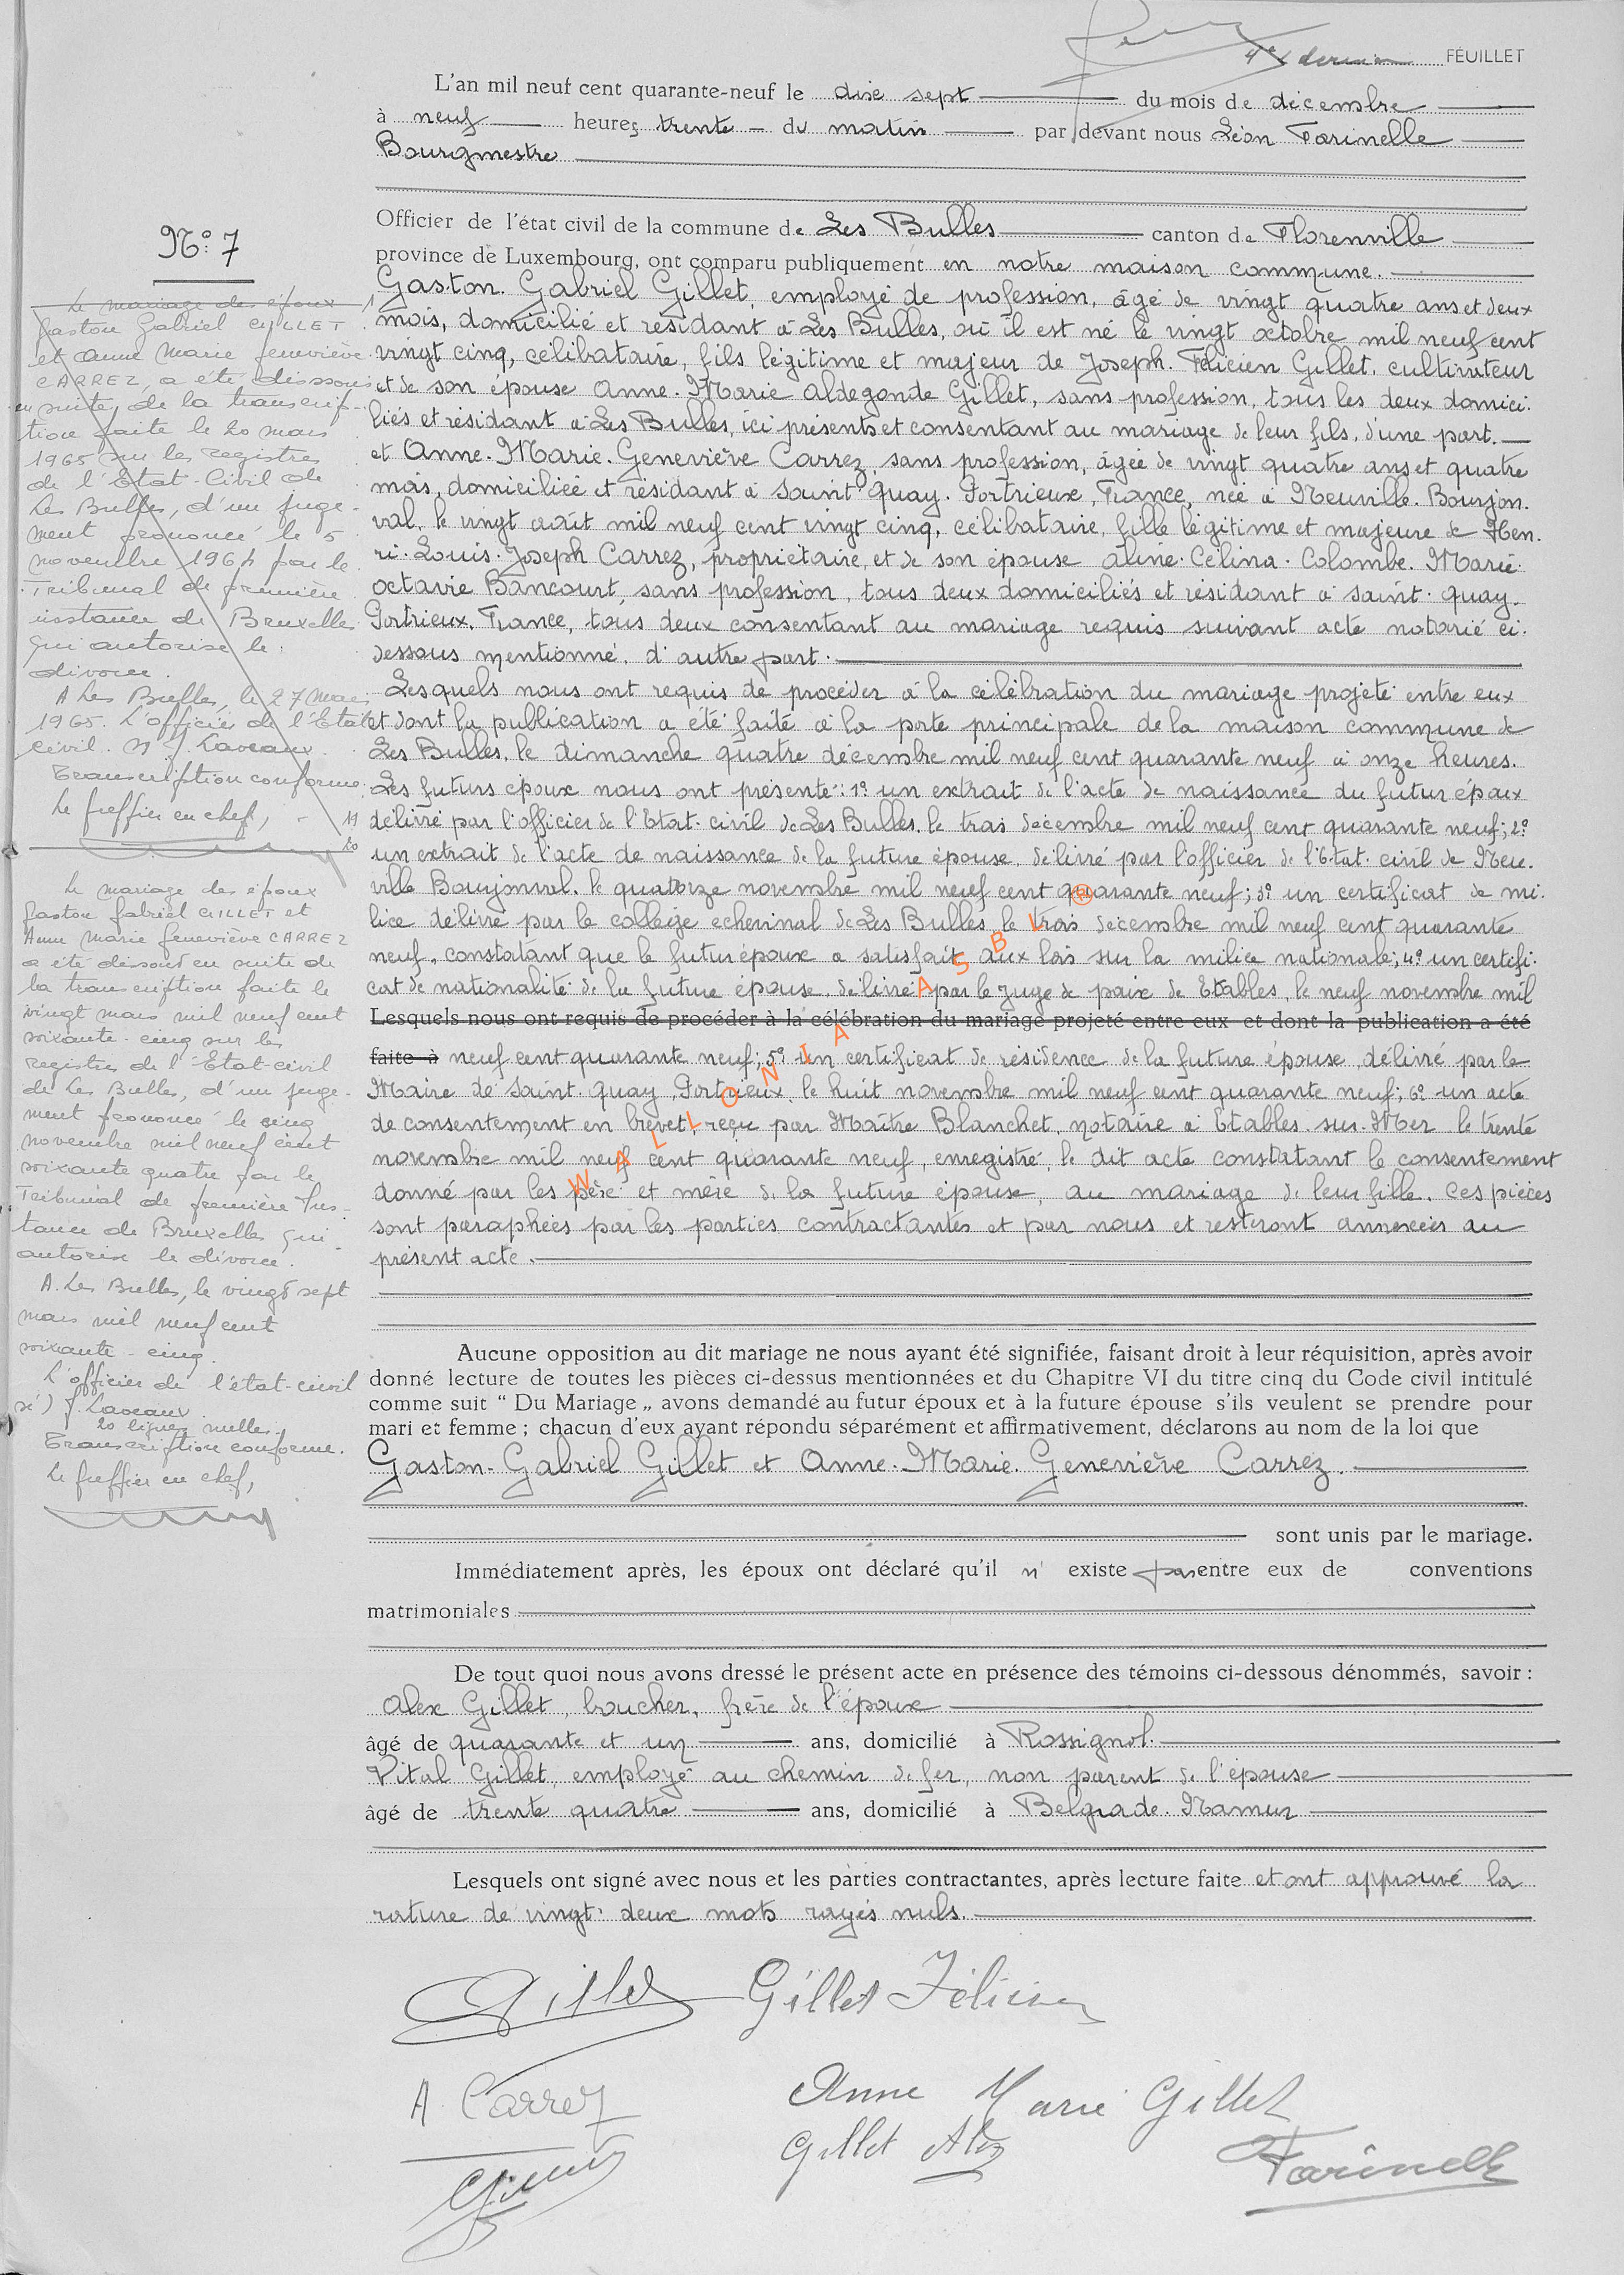 4e et dernier FEUILLET
L'an mil neuf cent quarante-neuf le dix sept du mois de décembre
à neuf heures trente du matin par devant nous Léon Farinelle
Bourgmestre
Officier de l'état civil de la commune de Les Bulles canton de Florenville
province de Luxembourg, ont comparu publiquement en notre maison commune.
N° 7
Gaston. Gabriel Gillet, employé de profession, âgé de vingt quatre ans et deux
mois, domicilié et résidant à Les Bulles, où il est né le vingt octobre mil neuf cent
vingt cinq, célibataire, fils légitime et majeur de Joseph. Félicien Gillet, cultivateur
et de son épouse Anne. Marie Aldegonde Gillet, sans profession, tous les deux domici.
liés et résidant à Les Bulles, ici présents et consentant au mariage de leur fils, d'une part.
et Anne. Marie. Geneviève Carrez, sans profession, âgée de vingt quatre ans et quatre
mois, domiciliée et résidant à Saint Quay. Portrieux, France, née à Neuville. Bourjon.
val, le vingt août mil neuf cent vingt cinq, célibataire, fille légitime et majeure de Hen.
ri. Louis. Joseph Carrez, propriétaire, et de son épouse Aline. Célina. Colombe. Marie.
Octavie Bancourt, sans profession, tous deux domiciliés et résidant à Saint. Quay.
Portrieux, France, tous deux consentant au mariage requis suivant acte notarié ci.
dessous mentionné, d'autre part.
Lesquels nous ont requis de procéder à la célébration du mariage projeté entre eux
et dont la publication a été faite à la porte principale de la maison commune de
Les Bulles, le dimanche quatre décembre mil neuf cent quarante neuf à onze heures.
Les futurs époux nous ont présenté : 1° un extrait de l'acte de naissance du futur époux
délivré par l'officier de l'Etat. civil de Les Bulles, le trois décembre mil neuf cent quarante neuf ; 2°
un extrait de l'acte de naissance de la future épouse, délivré par l'officier de l'Etat. civil de Neu.
ville Bourjonval, le quatorze novembre mil neuf cent quarante neuf ; 3° un certificat de mi.
lice délivré par le collège échevinal de Les Bulles, le trois décembre mil neuf cent quarante
neuf, constatant que le futur époux a satisfait aux lois sur la milice nationale ; 4° un certifi.
cat de nationalité de la future épouse, délivré par le juge de paix de Etables, le neuf novembre mil
Lesquels nous ont requis de procéder à la célébration du mariage projeté entre eux et dont la publication a été
faite à neuf cent quarante neuf ; 5° un certificat de résidence de la future épouse, délivré par le
Maire de Saint. Quay, Portrieux, le huit novembre mil neuf cent quarante neuf ; 6° un acte
de consentement en brevet, reçu par Maître Blanchet, notaire à Etables. sur. Mer le trente
novembre mil neuf cent quarante neuf, enregistré, le dit acte constatant le consentement
donné par les père et mère de la future épouse, au mariage de leur fille. Ces pièces
sont paraphées par les parties contractantes et par nous et resteront annexées au
présent acte.
Aucune opposition au dit mariage ne nous ayant été signifiée, faisant droit à leur réquisition, après avoir
donné lecture de toutes les pièces ci-dessus mentionnées et du Chapitre VI du titre cinq du Code civil intitulé
comme suit “ Du Mariage „ avons demandé au futur époux et à la future épouse s'ils veulent se prendre pour
mari et femme ; chacun d'eux ayant répondu séparément et affirmativement, déclarons au nom de la loi que
Gaston. Gabriel Gillet et Anne. Marie. Geneviève Carrez.
sont unis par le mariage.
Immédiatement après, les époux ont déclaré qu'il n' existe pas entre eux de conventions
matrimoniales
De tout quoi nous avons dressé le présent acte en présence des témoins ci-dessous dénommés, savoir :
Alex Gillet, boucher, frère de l'époux
âgé de quarante et un ans, domicilié à Rossignol.
Vital Gillet, employé au chemin de fer, non parent de l'épouse
âgé de trente quatre ans, domicilié à Belgrade. Namur
Lesquels ont signé avec nous et les parties contractantes, après lecture faite et ont approuvé la
rature de vingt deux mots rayés nuls.
Gillet Gillet Félicien
A Carrez Anne Marie Gillet
Gillet Alex
Farinelle
Le mariage des époux
Gaston Gabriel GILLET
et Anne Marie Geneviève
CARREZ, a été dissous
en suite de la transcrip-
tion faite le 20 mars
1965 sur les registres
de l'Etat-Civil de
Les Bulles, d'un juge-
ment prononcé le 5
novembre 1964 par le
Tribunal de première
instance de Bruxelles
qui autorise le
divorce.
A Les Bulles, le 27 Mars
1965. L'officier de l'Etat
civil. J. Laveaux
Transcription conforme
Le greffier en chef,
Le mariage des époux
Gaston Gabriel GILLET et
Anne Marie Geneviève CARREZ
a été dissout en suite de
la transcription faite le
vingt mars mil neuf cent
soixante-cinq sur les
registres de l'Etat-civil
de Les Bulles, d'un juge-
ment prononcé le cinq
novembre mil neuf cent
soixante quatre par le
Tribunal de première Ins-
tance de Bruxelles qui
autorise le divorce.
A Les Bulles, le vingt sept
mars mil neuf cent
soixante-cinq.
L'officier de l'état-civil
sé) J. Laveaux
20 lignes nulles.
Transcription conforme.
Le greffier en chef,
WALLONIA ASBL ®